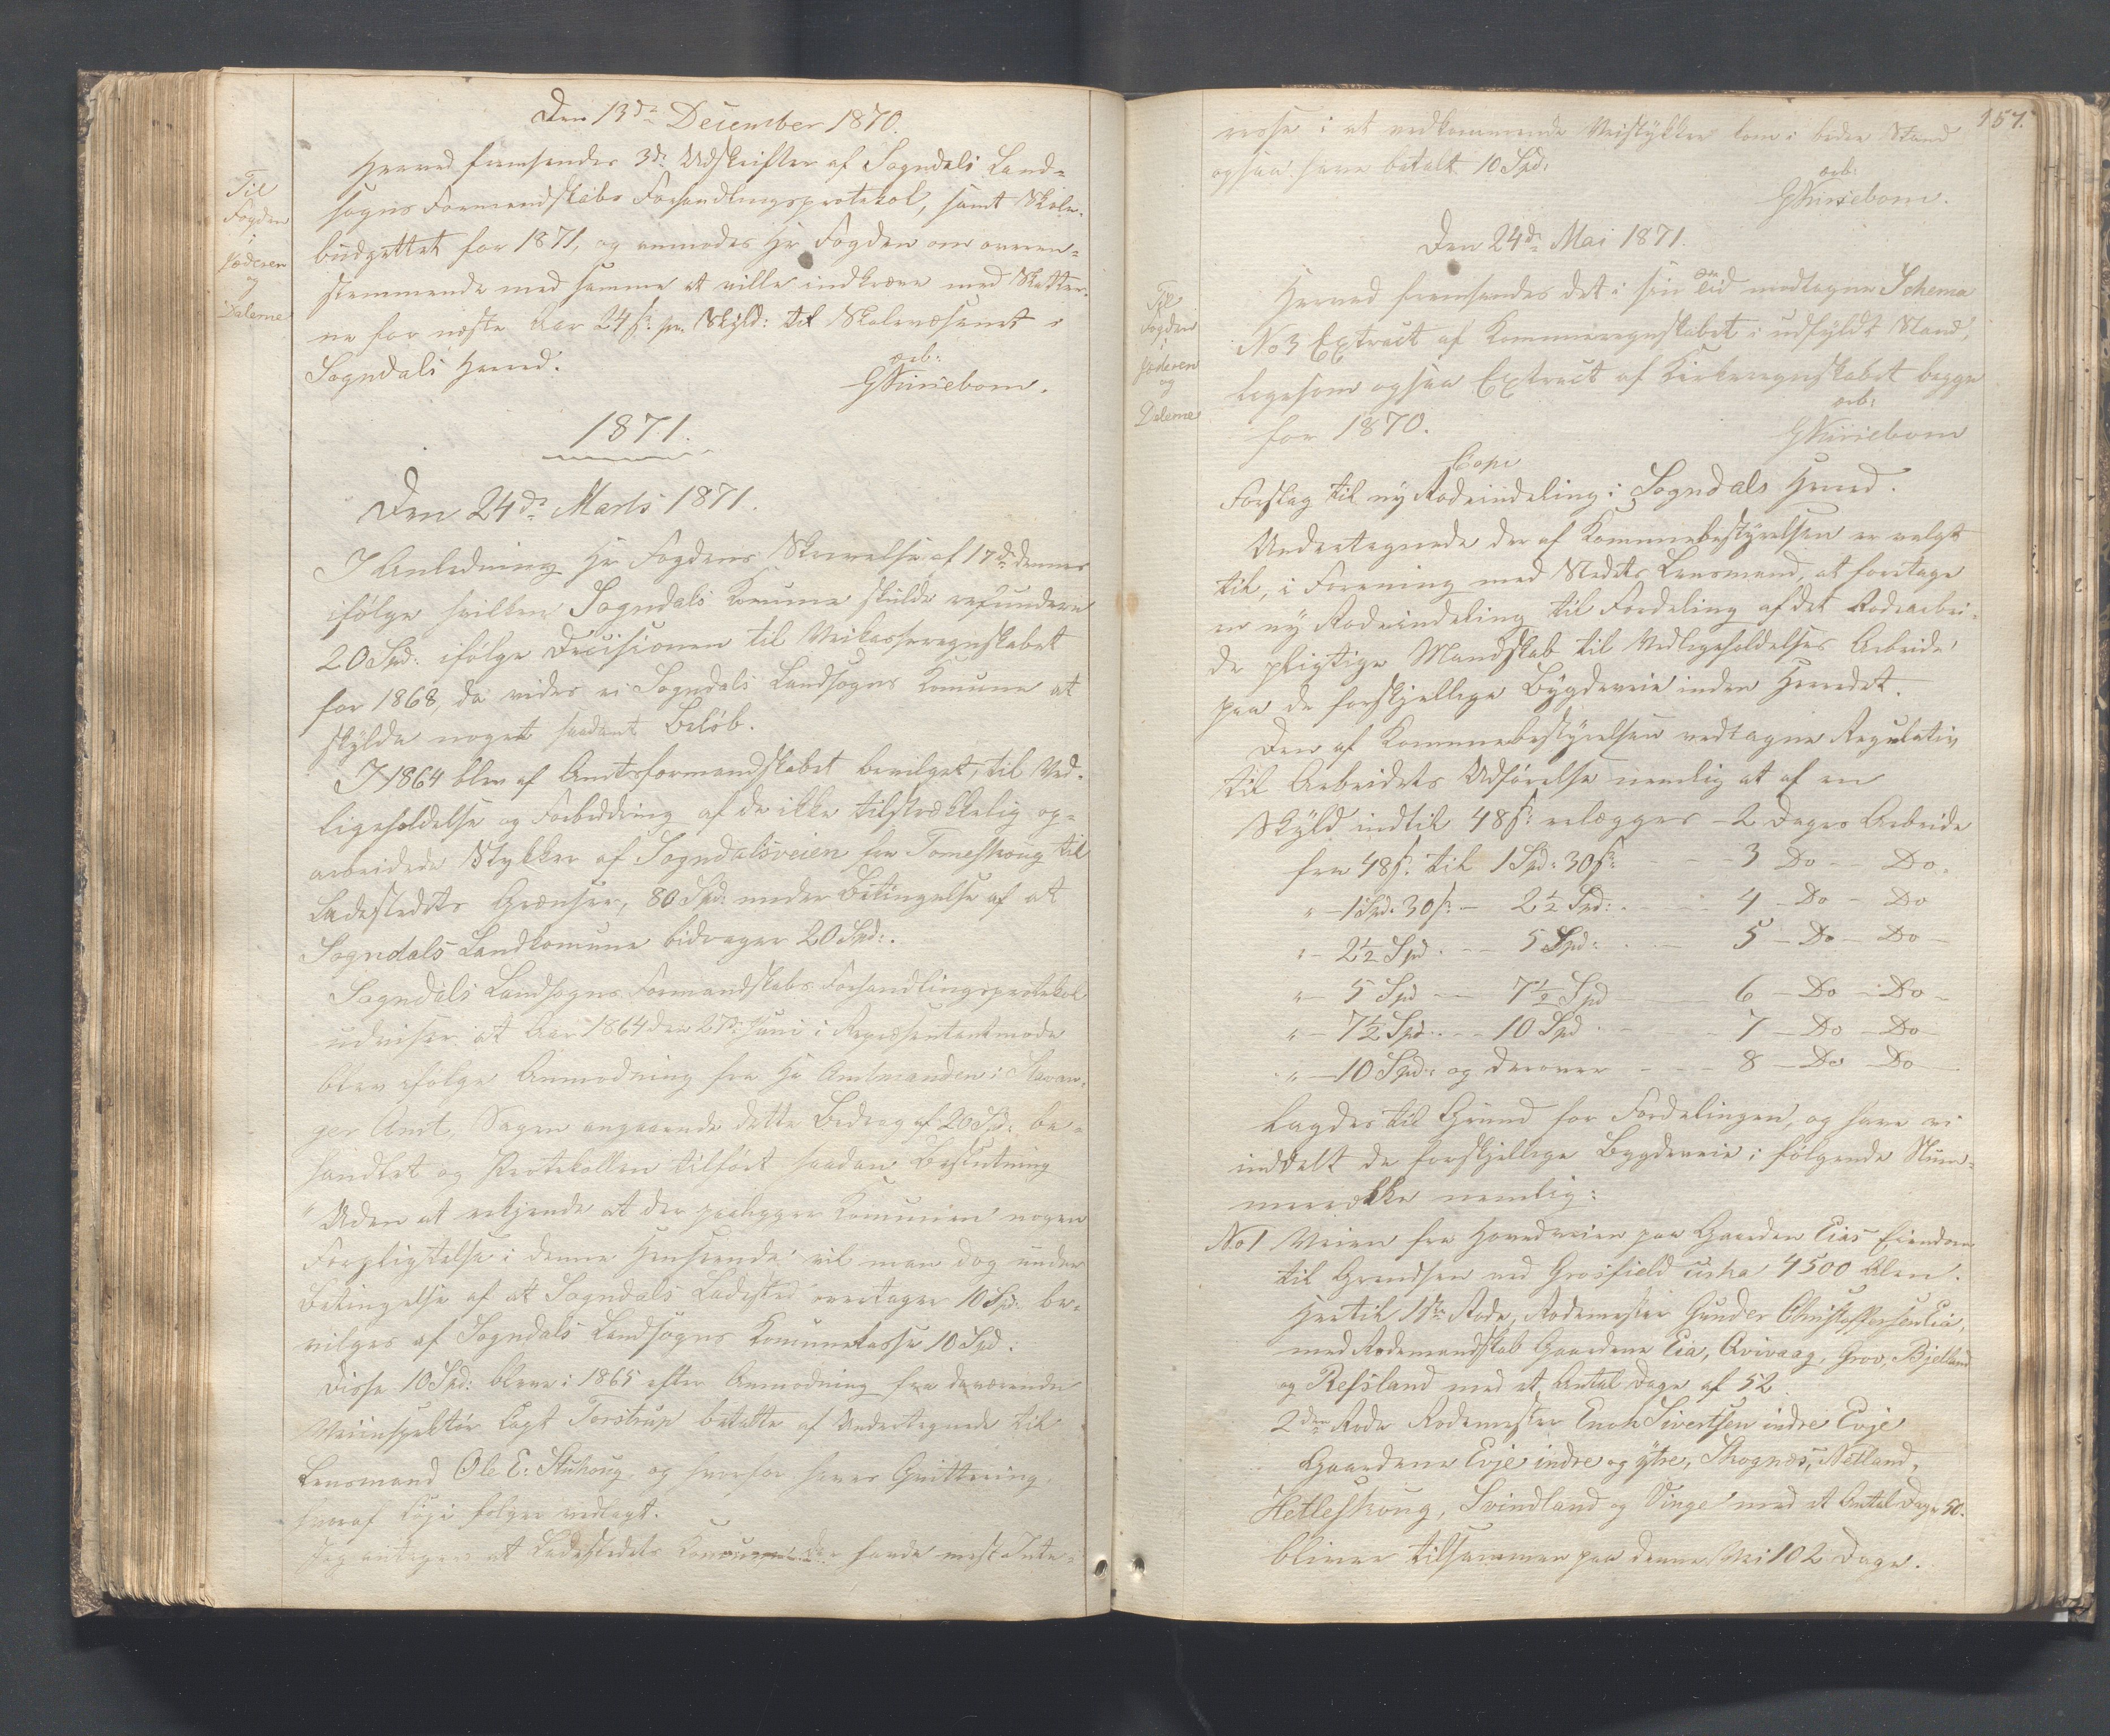 Den 13de December 1870.
Til
Fogden
i
Jæderen
og
Dalerne
Herved fremsendes 3de Udskrifter af Sogndals Land-
sogns Formandskabs Forhandlingsprotokol, samt Skole-
budgettet for 1871, og anmodes Hr Fogden om overen-
stemmende med samme at ville indkræve med Skatter-
ne for næste Aar 24 s: pr. Skyld: til Skolevæsenet i
Sogndals Herred.
ærb:
1871.
Den 24de Marts 1871.
I Anledning Hr Fogdens Skrivelse af 17de dennes
ifølge hvilken Sogndals Komune skulde refundere
20 Spd: ifølge Decisionen til Veikasseregnskabet
for 1868, da vides ei Sogndals Landsogns Komune at
skylde noget saadant Beløb.
I 1864 blev af Amtsformandskabet bevilget, til Ved-
ligeholdelse og Forbedring af de ikke tilstrækkelig op-
arbeidede Stykker af Sogndalsveien fra Tomeskoug til
Ladestedets Grænser, 80 Spd: under Betingelse af at
Sogndals Landkomune bidrager 20 Spd:.
Sogndals Landsogns Formandskabs Forhandlingsprotokol
udviser at Aar 1864 den 27de Juni i Repræsentantmøde
blev ifølge Anmodning fra Hr Amtmanden i Stavan-
ger Amt, Sagen angaaende dette Bedrag af 20 Spd: be-
handlet og Protokollen tilført saadan Beslutning
"Uden at erkjende at der paaligger Komunen nogen
Forpligtelse i denne Henseende vil man dog under
Betingelse af at Sogndals Ladested overtager 10 Spd: be-
vilges af Sogndals Landsogns Komunekasse 10 Spd:
Disse 10 Spd: bleve i 1865 efter Anmodning fra daværende
Veiinspektør Capt Torstrup betalte af Undertegnede til
Lensmand Ole E: Stuhoug, og hvorfor haves Qvittering,
hvoraf Copi følger vedlagt.
Jeg antager at Ladestedets Komune der havde mest Inte-
157.
resse i at vedkommende Veistykker kom i bedre Stand
ogsaa have betalt 10 Spd:
ærb:
Den 24de Mai 1871.
Til
Fogden
i
Jæderen
og
Dalerne
Herved fremsendes det i sin Tid modtagne Schema
No 3 Extract af Kommuneregnskabet i udfyldt Stand,
ligesom ogsaa Extract af Kirkeregnskabet begge
for 1870.
ærb:
Copi
Forslag til ny Rodeinddeling i Sogndals Herred.
Undertegnede der af Kommunebestyrelsen er valgt
til, i Forening med Stedets Lensmand, at foretage
en ny Rodeinddeling til Fordeling af det Rodearbei-
de pligtige Mandskab til Vedligeholdelses Arbeide
paa de forskjellige Bygdeveie inden Herredet.
Den af Kommunebestyrelsen vedtagne Regulativ
til Arbeidets Udførelse nemlig at af en
Skyld indtil 48 s: erlægges - 2 Dages Arbeide
fra 48 s. til 1 Spd: 30 s: - - 3 Do - Do.
" - 1 Spd: 30 s: - 2½ Spd: - - 4 - Do - Do
" - 2½ Spd. - - 5 Spd: - - 5 - Do - Do -
" - 5 Spd - - 7½ Spd - - 6 - Do - Do -
" - 7½ Spd: - - 10 Spd. - - 7 - Do - Do -
" - 10 Spd: og derover - - - 8 - Do - Do -
lagdes til Grund for Fordelingen, og have vi
inddelt de forskjellige Bygdeveie i følgende Num-
merrække nemlig:
No 1 Veien fra Hovedveien paa Gaarden Eias Eiendom
til Grændsen ved Grosfield cirka 4500 Alen.
Hertil 1ste Rode, Rodemester Gunder Christoffersen Eia,
med Rodemandskab Gaardene Eia, Qvivaag, Grov, Bjelland
og Refsland med et Antal Dage af 52.
2den Rode Rodemester Enok Sivertsen indre Evje
Gaardene Evje indre og ytre, Skognæs, Netland,
Hetleskoug, Svindland og Vinge med et Antal Dage 50.
bliver tilsammen paa denne Vei 102 Dage.